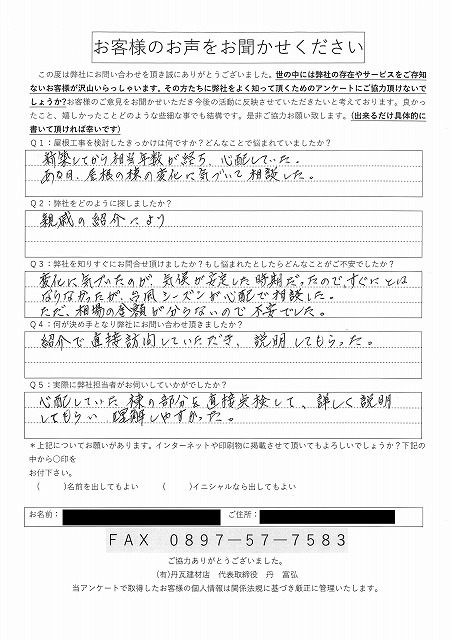 お客様のお声をお聞かせください
この度は弊社にお問い合わせを頂き誠にありがとうございました。世の中には弊社の存在やサービスをご存知
ないお客様が沢山いらっしゃいます。その方たちに弊社をよく知って頂くためのアンケートにご協力頂けないで
しょうか?お客様のご意見をお聞かせいただき今後の活動に反映させていただきたいと考えております。良かっ
たこと、嬉しかったことどのような些細な事でも結構です。是非ご協力お願い致します。(出来るだけ具体的に
書いて頂ければ幸いです)
Q1:屋根工事を検討したきっかけは何ですか?どんなことで悩まれていましたか?
新築してから相当年数が経ち、心配していた。
ある日、屋根の棟の変化に気づいて相談した。
Q2:弊社をどのように探しましたか?
親戚の紹介により
Q3:弊社を知りすぐにお問合せ頂けましたか?もし悩まれたとしたらどんなことがご不安でしたか?
変化に気づいたのが、気候が安定した時期だったので、すぐにとは
ならなかったが、台風シーズンが心配で相談した。
ただ、相場の金額が分らないので不安でした。
Q4:何が決め手となり弊社にお問い合わせ頂きましたか?
紹介で直接訪問していただき、説明してもらった。
Q5:実際に弊社担当者がお伺いしていかがでしたか?
心配していた棟の部分を直接点検して、詳しく説明
してもらい理解しやすかった。
*上記についてお願いがあります。インターネットや印刷物に掲載させて頂いてもよろしいでしょうか?下記の
中から〇印を
お付下さい。
( )名前を出してもよい ( )イニシャルなら出してもよい
お名前: ご住所:
FAX 0897-57-7583
ご協力ありがとうございました。
(有)丹瓦建材店 代表取締役 丹 富弘
当アンケートで取得したお客様の個人情報は関係法規に基づき厳正に管理いたします。